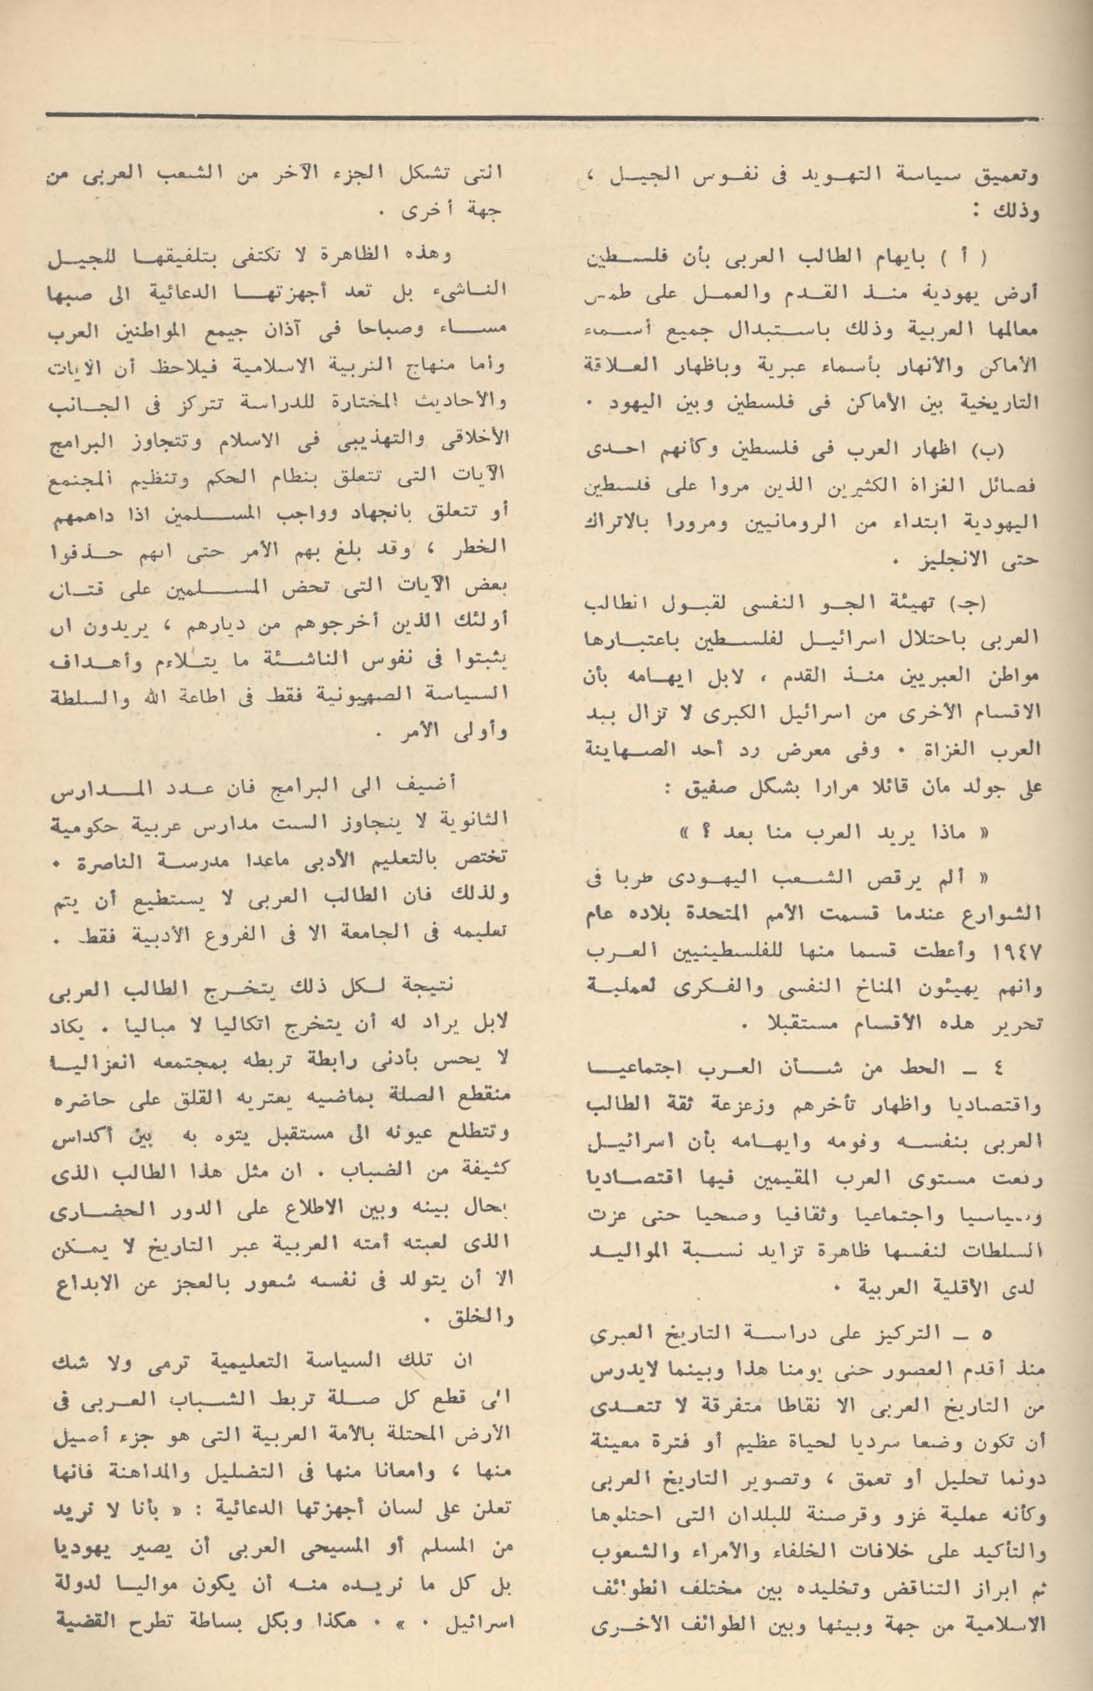 وتعميق سياسة التهويد في نفوس الجيل ،
وذلك :
( أ ) بايهام الطالب العربى بأن فلسطين
أرض يهودية منذ القدم والعمل على طمس
معالمها العربية وذلك باستبدال جميع أسماء
الأماكن والأنهار بأسماء عبرية وباظهار العلاقة
التاريخية بين الأماكن فى فلسطين وبين اليهود .
(ب) اظهار العرب فى فلسطين وكأنهم احدى
فصائل الغزاة الكثيرين الذين مروا على فلسطين
اليهودية ابتداء من الرومانيين ومرورا بالاتراك
حتى الانجليز .
(جـ) تهيئة الجو النفسى لقبول الطالب
العربى باحتلال اسرائيل لفلسطين باعتبارها
مواطن العبريين منذ القدم ، لابل ايهامه بأن
الاقسام الأخرى من اسرائيل الكبرى لا تزال بيد
العرب الغزاة . وفى معرض رد أحد الصهاينة
على جولد مان قائلا مرارا بشكل صفيق :
« ماذا يريد العرب منا بعد ؟ »
« ألم يرقص الشعب اليهودى طربا فى
الشوارع عندما قسمت الأمم المتحدة بلاده عام
١٩٤٧ وأعطت قسما منها للفلسطينيين العرب
وانهم يهيئون المناخ النفسى والفكرى لعملية
تحرير هذه الأقسام مستقبلا .
٤ ــ الحط من شأن العرب اجتماعيا
واقتصاديا واظهار تأخرهم وزعزعة ثقة الطالب
العربى بنفسه وقومه وايهامه بأن اسرائيل
رفعت مستوى العرب المقيمين فيها اقتصاديا
وسياسيا واجتماعيا وثقافيا وصحيا حتى عزت
السلطات لنفسها ظاهرة تزايد نسبة المواليد
لدى الأقلية العربية .
٥ ــ التركيز على دراسة التاريخ العبرى
منذ أقدم العصور حتى يومنا هذا وبينما لايدرس
من التاريخ العربى الا نقاطا متفرقة لا تتعدى
أن تكون وضعا سرديا لحياة عظيم أو فترة معينة
دونما تحليل أو تعمق ، وتصوير التاريخ العربى
وكأنه عملية غزو وقرصنة للبلدان التى احتلوها
والتأكيد على خلافات الخلفاء والأمراء والشعوب
ثم ابراز التناقض وتخليده بين مختلف الطوائف
الاسلامية من جهة وبينها وبين الطوائف الأخرى
التى تشكل الجزء الآخر من الشعب العربى من
جهة أخرى .
وهذه الظاهرة لا تكتفى بتلفيقها للجيل
الناشىء بل تعد أجهزتها الدعائية الى صبها
مساء وصباحا فى آذان جميع المواطنين العرب
وأما منهاج التربية الاسلامية فيلاحظ أن الآيات
والأحاديث المختارة للدراسة تتركز فى الجانب
الأخلاقى والتهذيبى فى الاسلام وتتجاوز البرامج
الآيات التى تتعلق بنظام الحكم وتنظيم المجتمع
أو تتعلق بالجهاد وواجب المسلمين اذا داهمهم
الخطر ، وقد بلغ بهم الأمر حتى انهم حذفوا
بعض الآيات التى تحض المسلمين على قتال
أولئك الذين أخرجوهم من ديارهم ، يريدون ان
يثبتوا فى نفوس الناشئة ما يتلاءم وأهداف
السياسة الصهيونية فقط فى اطاعة الله والسلطة
وأولى الأمر .
أضيف الى البرامج فان عدد المدارس
الثانوية لا يتجاوز الست مدارس عربية حكومية
تختص بالتعليم الأدبى ماعدا مدرسة الناصرة .
ولذلك فان الطالب العربى لا يستطيع أن يتم
تعليمه فى الجامعة الا فى الفروع الأدبية فقط .
نتيجة لكل ذلك يتخرج الطالب العربى
لابل يراد له أن يتخرج اتكاليا لا مباليا . يكاد
لا يحس بأدنى رابطة تربطه بمجتمعه انعزاليا
منقطع الصلة بماضيه يعتريه القلق على حاضره
وتتطلع عيونه الى مستقبل يتوه به بين أكداس
كثيفة من الضباب . ان مثل هذا الطالب الذى
يحال بينه وبين الاطلاع على الدور الحضارى
الذى لعبته أمته العربية عبر التاريخ لا يمكن
الا أن يتولد فى نفسه شعور بالعجز عن الابداع
والخلق .
ان تلك السياسة التعليمية ترمى ولا شك
الى قطع كل صلة تربط الشباب العربى فى
الأرض المحتلة بالأمة العربية التى هو جزء أصيل
منها ، وامعانا منها فى التضليل والمداهنة فانها
تعلن على لسان أجهزتها الدعائية : « بأنا لا نريد
من المسلم أو المسيحى العربى أن يصير يهوديا
بل كل ما نريده منه أن يكون مواليا لدولة
اسرائيل . » . هكذا وبكل بساطة تطرح القضية